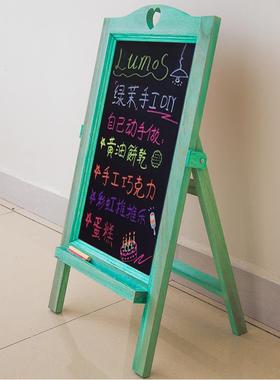 Lumos
绿茉手工DIY
自己动手做,
黄油餅乾
手工巧克力
彩虹推推乐
蛋糕